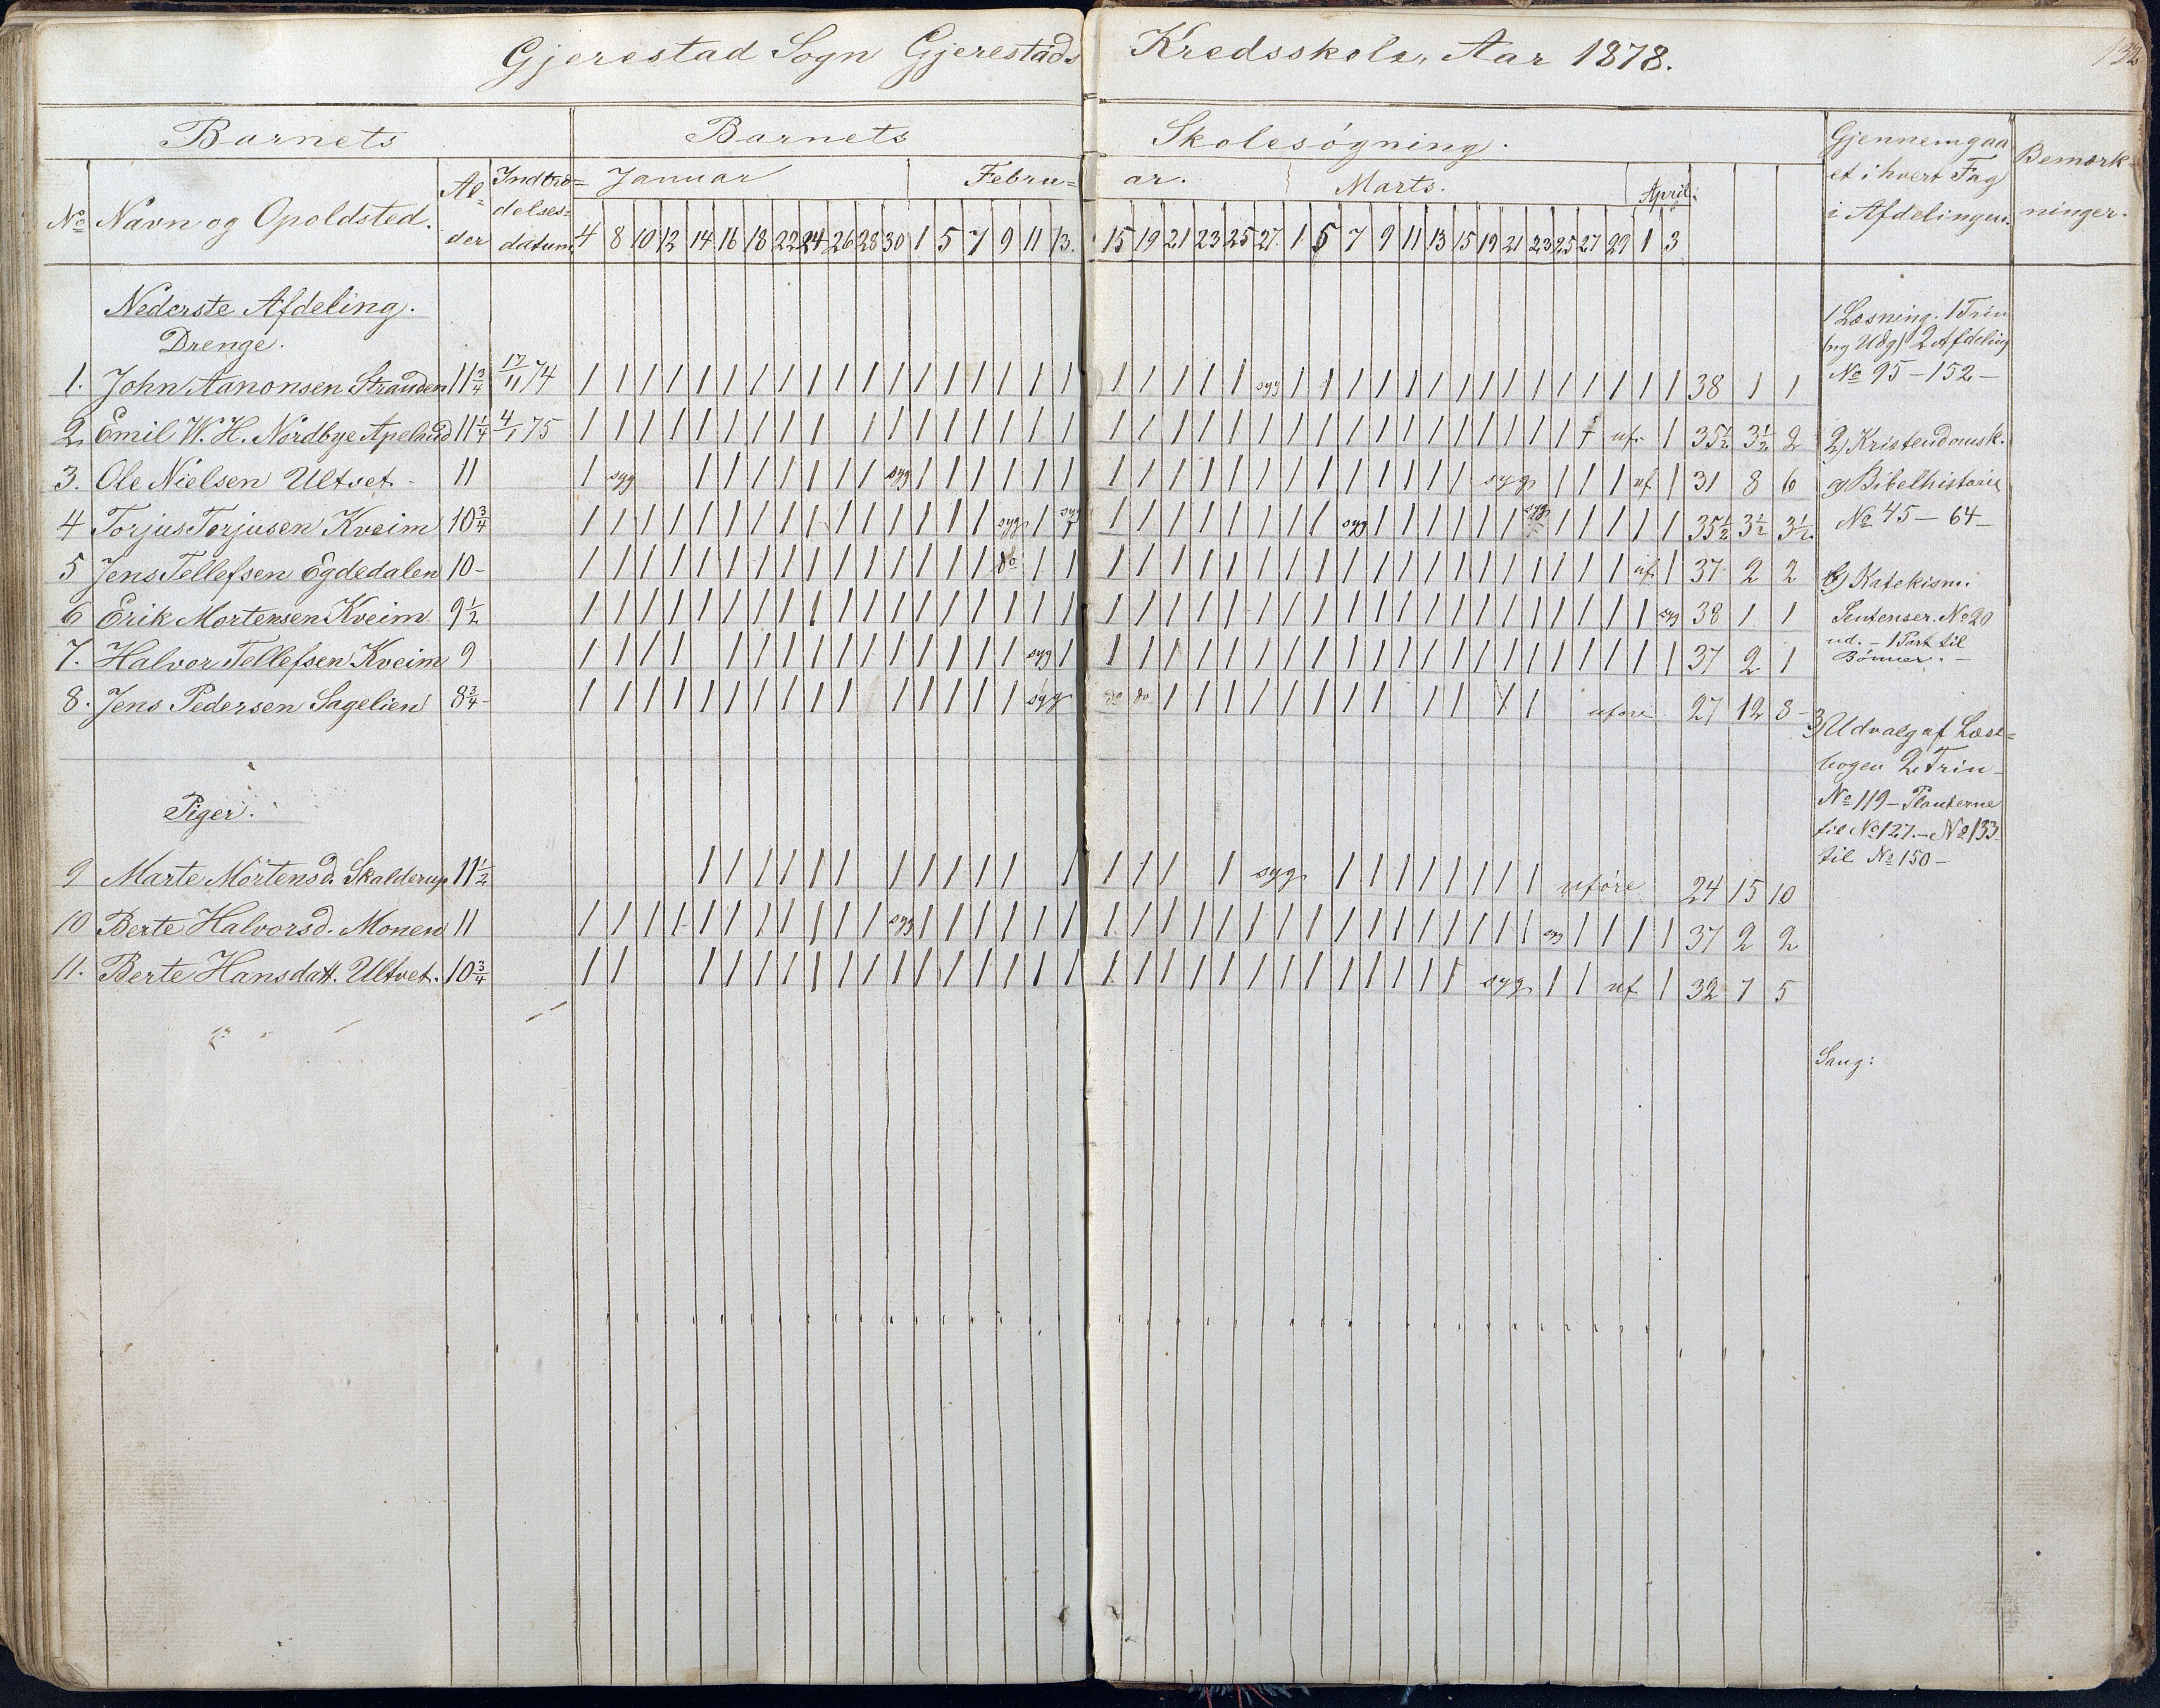 Gjerestad Sogn Gjerestads Kredsskole, Aar 1878. 132
Barnets Barnets Skolesøgning. Gjennemgaaet i hvert Fag i Afdelingen. Bemærkninger.
No Navn og Opoldsted. Alder Indtrædelsesdatum. Januar Februar. Marts. April.
4 8 10 12 14 16 18 22 24 26 28 30 1 5 7 9 11 13. 15 19 21 23 25 27. 1 5 7 9 11 13 15 19 21 23 25 27 29 1 3
Nederste Afdeling.
Drenge.
1. John Aanonsen Stranden 11 3/4 17/11 74 1 1 1 1 1 1 1 1 1 1 1 1 1 1 1 1 1 1 1 1 1 1 1 syg 1 1 1 1 1 1 1 1 1 1 1 1 1 1 1 38 1 1
2. Emil W. H. Nordbye Apelund 11 1/4 4/1 75 1 1 1 1 1 1 1 1 1 1 1 1 1 1 1 1 1 1 1 1 1 1 1 1 1 1 1 1 1 1 1 1 1 1 uf. 1 35 1/2 3 1/2 2
3. Ole Nielsen Ultvet - 11 1 syg 1 1 1 1 1 1 1 syg 1 1 1 1 1 1 1 1 1 1 1 1 1 1 1 1 1 1 1 1 syg 1 1 1 uf 1 31 8 6
4 Torjus Torjusen Kveim 10 3/4 1 1 1 1 1 1 1 1 1 1 1 1 1 1 1 syg 1 syg 1 1 1 1 1 1 1 1 syg 1 1 1 1 1 1 syg 1 1 1 1 1 35 1/2 3 1/2 3 1/2
5 Jens Tellefsen Egdedalen 10- 1 1 1 1 1 1 1 1 1 1 1 1 1 1 1 do 1 1 1 1 1 1 1 1 1 1 1 1 1 1 1 1 1 1 1 1 1 uf. 1 37 2 2
6 Erik Mortensen Kveim 9 1/2 1 1 1 1 1 1 1 1 1 1 1 1 1 1 1 1 1 1 1 1 1 1 1 1 1 1 1 1 1 1 1 1 1 1 1 1 1 1 syg 38 1 1
7. Halvor Tellefsen Kveim 9 1 1 1 1 1 1 1 1 1 1 1 1 1 1 1 syg 1 1 1 1 1 1 1 1 1 1 1 1 1 1 1 1 1 1 1 1 1 1 37 2 1
8. Jens Pedersen Sagelien 8 3/4 - 1 1 1 1 1 1 1 1 1 1 1 1 1 1 1 syg do do 1 1 1 1 1 1 1 1 1 1 1 1 uføre 27 12 8
Piger.
9 Marte Mortensd. Skalderup 11 1/2 1 1 1 1 1 1 1 1 1 1 1 1 1 1 1 1 syg 1 1 1 1 1 1 1 1 uføre 24 15 10
10 Berte Halvorsd. Monen 11 1 1 1 1 1 1 1 1 1 1 1 syg 1 1 1 1 1 1 1 1 1 1 1 1 1 1 1 1 1 1 1 1 1 syg 1 1 1 1 1 37 2 2
11. Berte Hansdatt. Ultvet. 10 3/4 1 1 1 1 1 1 1 1 1 1 1 1 1 1 1 1 1 1 1 1 1 1 1 1 1 1 1 1 1 syg 1 1 uf 1 32 7 5
1 Læsning. 1 Trin
(ny Udg) 2 Afdeling
No 95 - 152 -
2) Kristendomsk.
a) Bibelhistorie
No 45 - 64 -
b) Katekism.
Sentenser. No 20
ud. - 1 Part til
Bønner. -
3) Udvalg af Læse=
bogen 2. Trin -
No 119 - Planterne
til No 127. - No 133
til No 150 -
Sang: